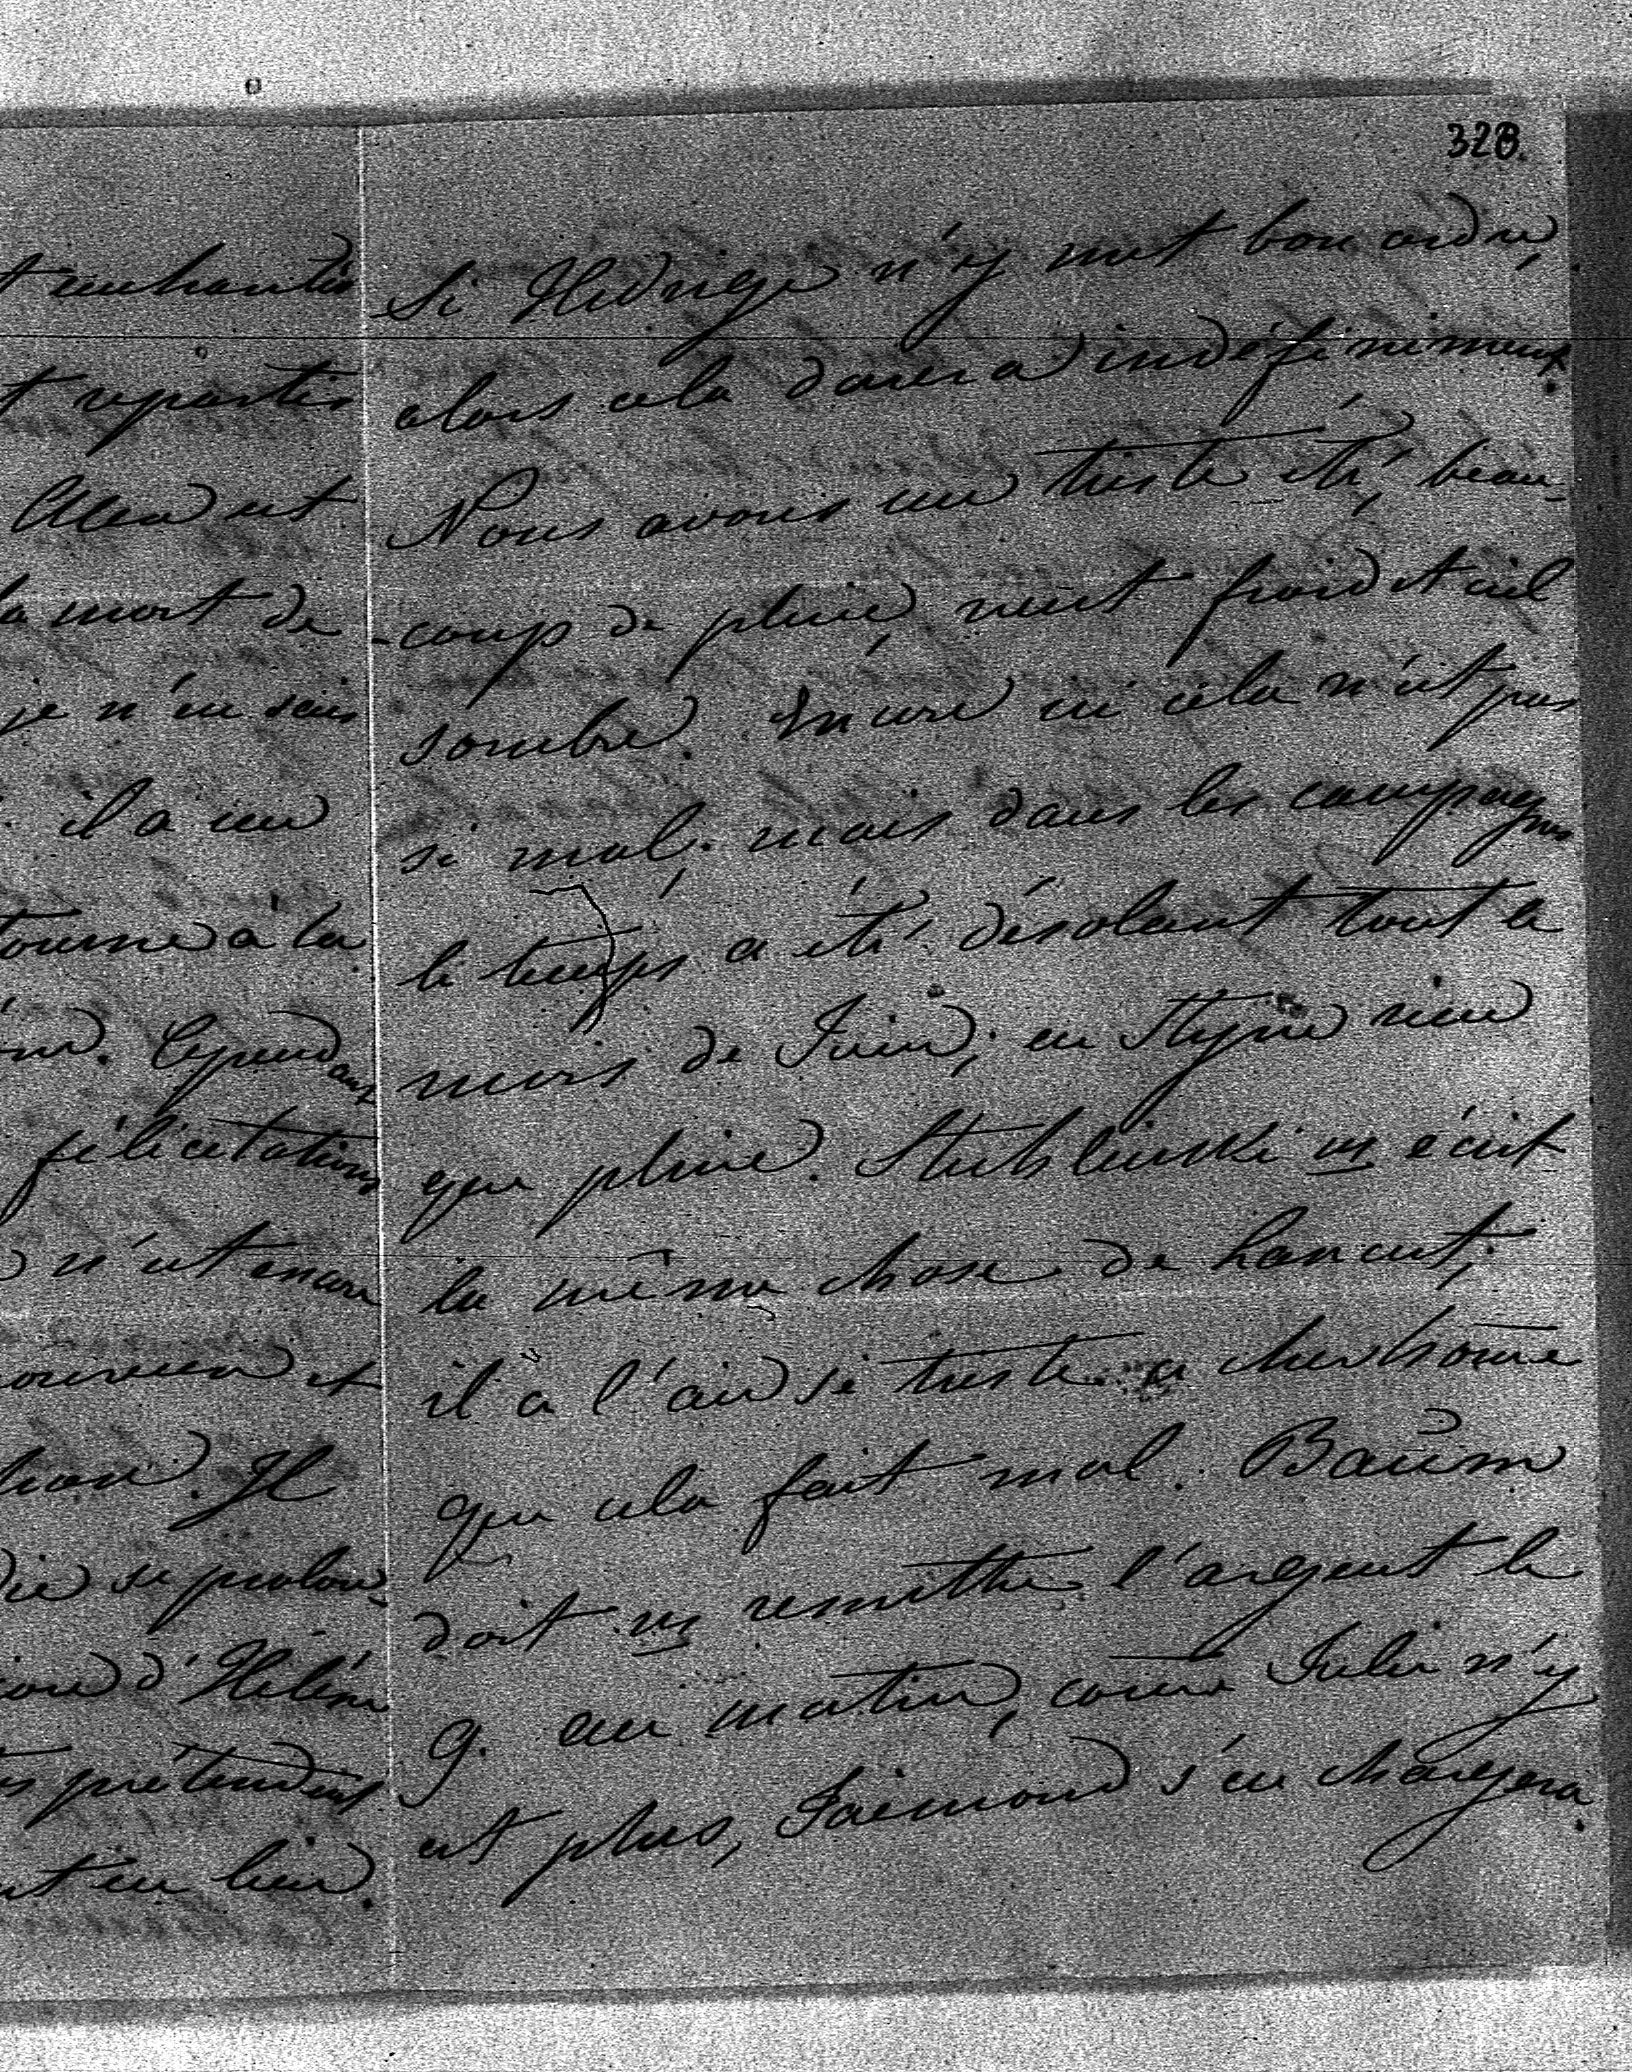 328.
t enchantés
t repartis
Alea est
la mort de
je n'en sais
il a un
tourne à la
Cependant
félicitations
n'est encore
et
Il
die se prolon-
d'Hélène
s prétendus
nt en lieu.
Si Hedvige n'y met bon ordre,
alors cela durera indéfiniment.
Nous avons un triste été, beau-
-coup de pluie, vent froid et ciel
sombre. Encore ici cela n'est pas
si mal. mais dans les campagnes
le temps a été désolant tout le
mois de Juin; en Styrie rien
que pluie. Stublinski m'écrit
la même chose de Lancut;
il a l'air si triste ce cher home
que cela fait mal. Baūm
doit m remettre l'argent le
9. au matin, come Julie n'y
est plus, Jaimond s'en chargera.